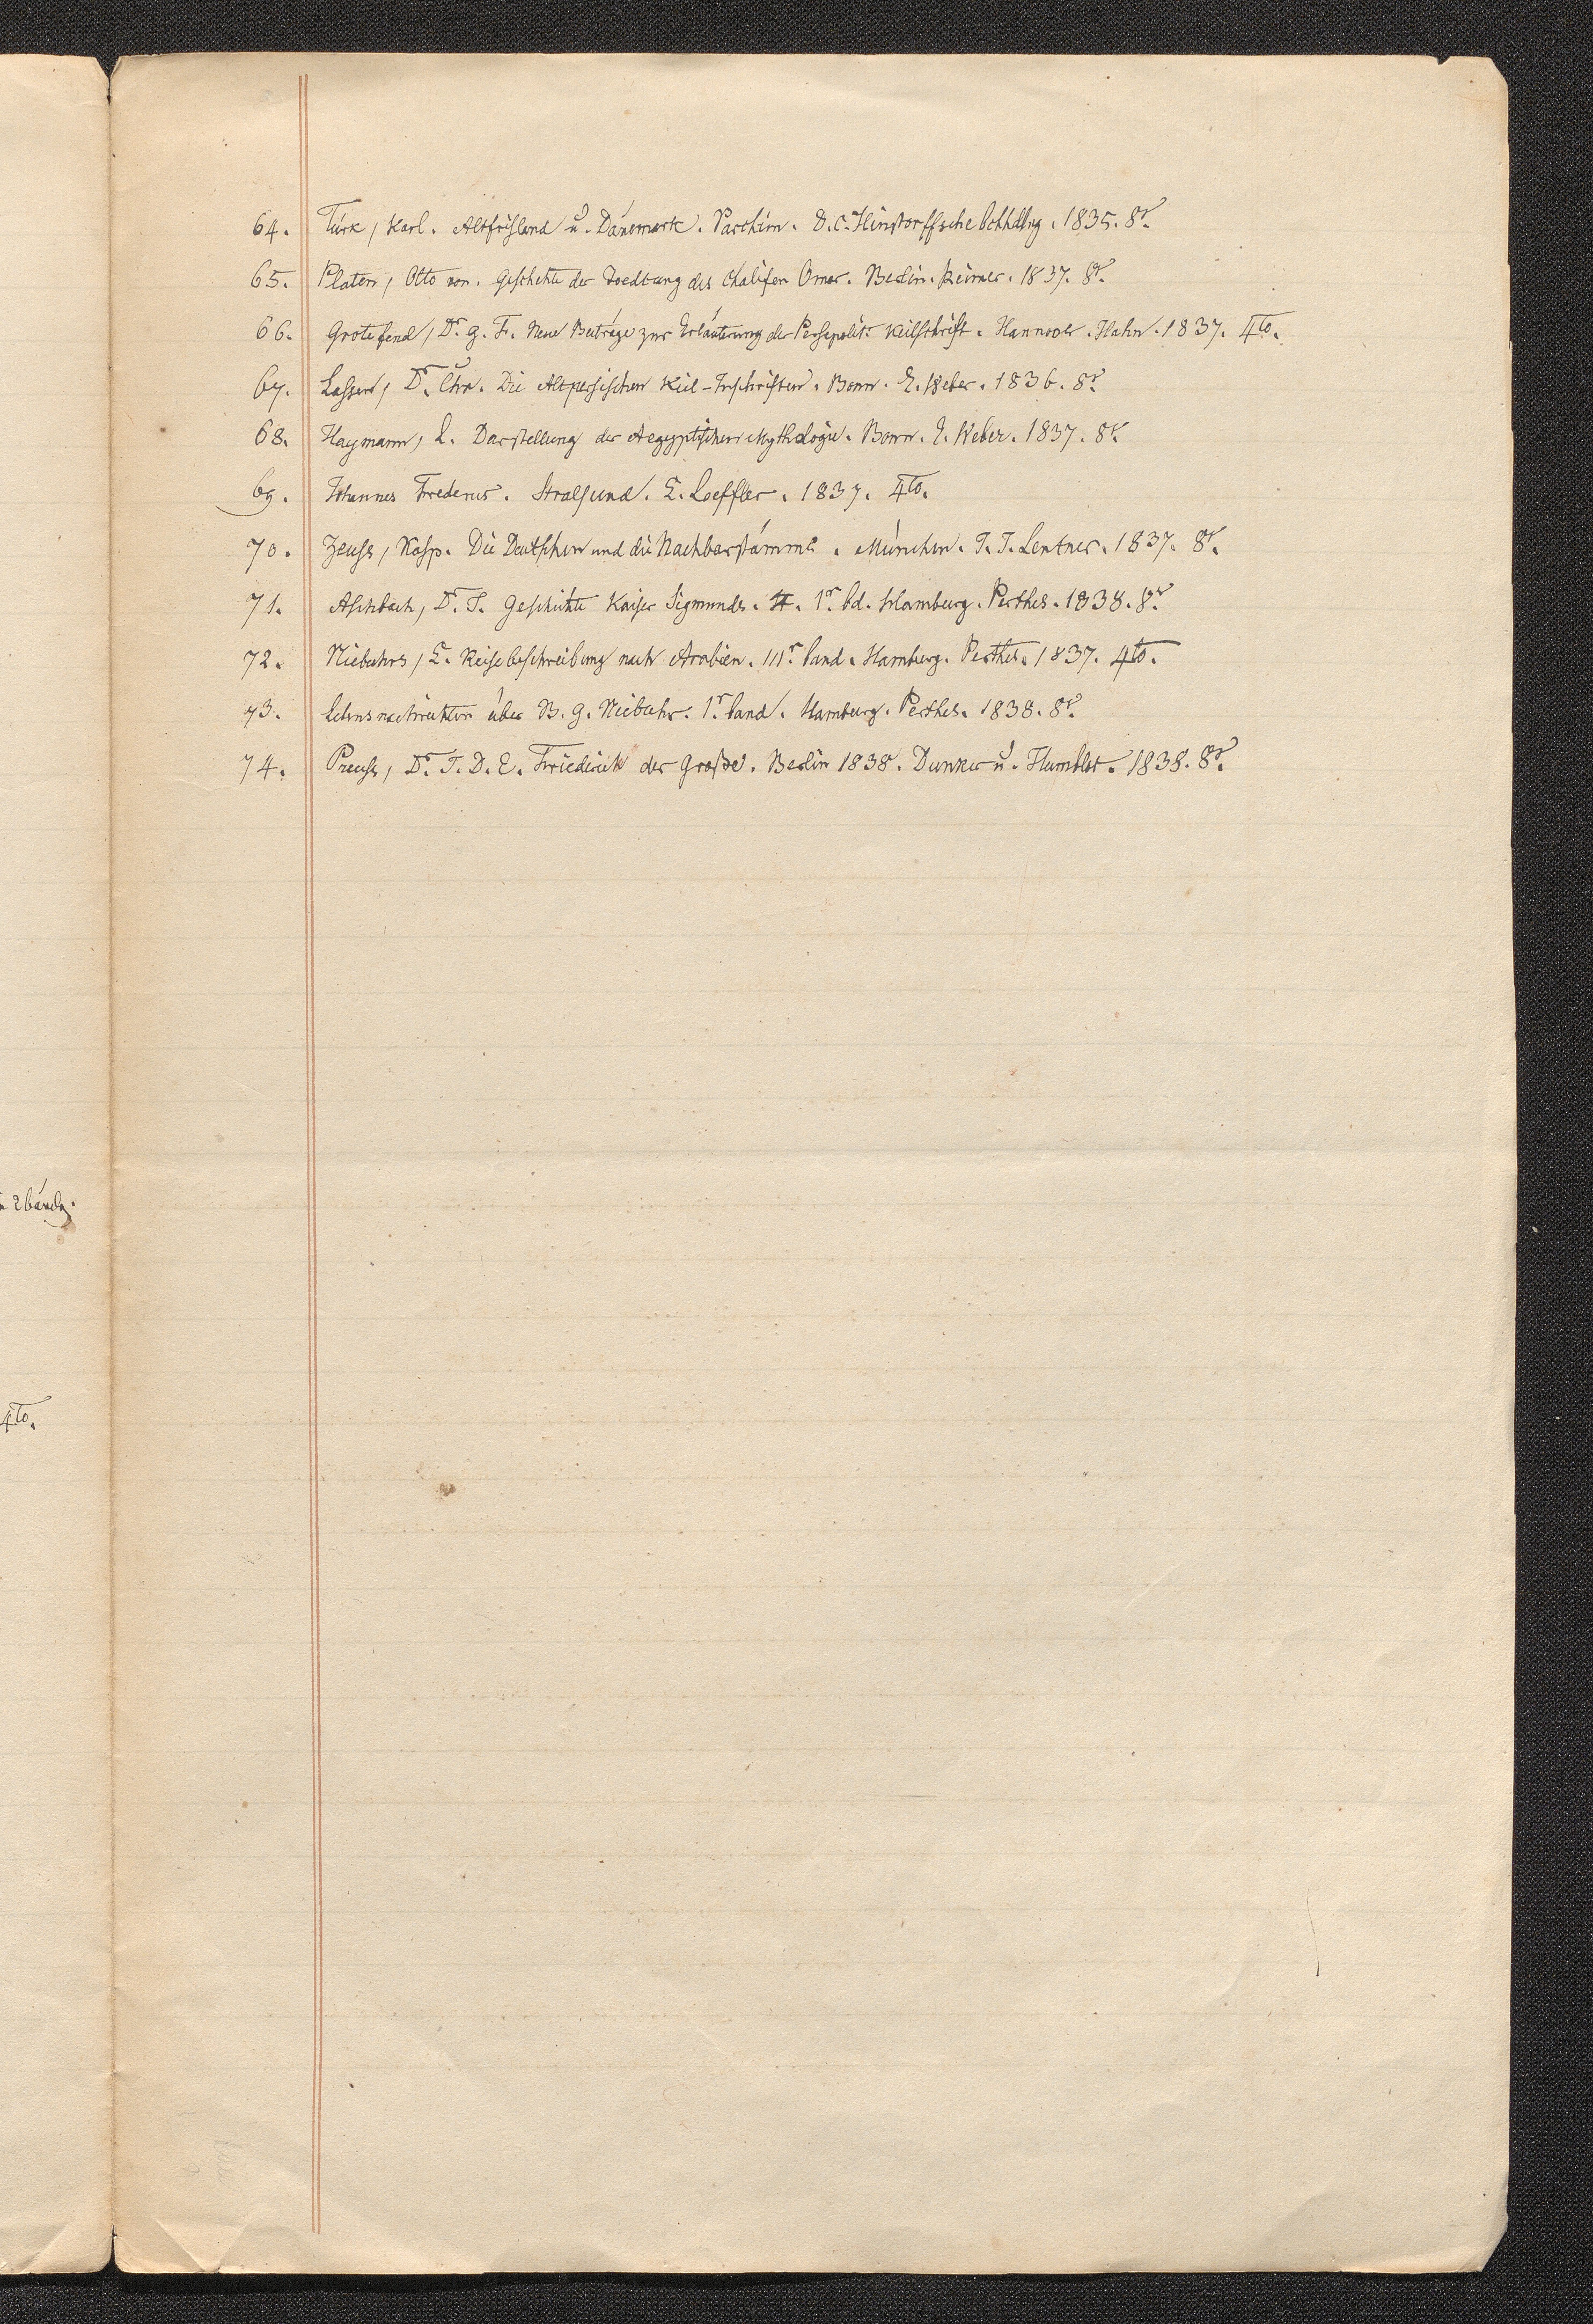 64. Türk, Karl. Altfrisland u. Dänemark. Parchim. D.C. Hinstorffsche bchhdlng. 1835. 8°.
65. Platen, Otto von. Geschchte der Toedtung des Chalifen Omar. Berlin. Reimer. 1837. 8°.
66. Grotefend, Dr. G. F. Neue Beiträge zur Erläuterung der Persepolit. Keilschrift. Hannover. Hahn. 1837. 4to.
67. Lassen, Dr. Chr. Die Altpersischen Keil-Inschriften. Bonn. E. Weber. 1836. 8°.
68. Haymann, L. Darstellung der Aegyptischen Mythologie. Bonn. E. Weber. 1837. 8°.
69. Johannes Frederus. Stralsund. C. Loeffler. 1837. 4to.
70. Zeuss, Kasp. Die Deutschen und die Nachbarstämme. München. I. I. Lentner. 1837. 8°.
71. Aschbach, Dr. I. Geschichte Kaiser Sigmunds. 1r. bd. Hamburg. Perthes. 1838. 8°.
72. Niebuhrs, C. Reisebeschreibung nach Arabien. IIIr. band. Hamburg. Perthes. 1837. 4to.
73. lebensnachrichten über B. G. Niebuhr. 1r. band. Hamburg. Perthes. 1838. 8°.
74. Preuss, Dr. I. D. E. Friederich der Große. Berlin 1838. Dunker u. Humblot. 1838. 8°.
2 bände.
4to.